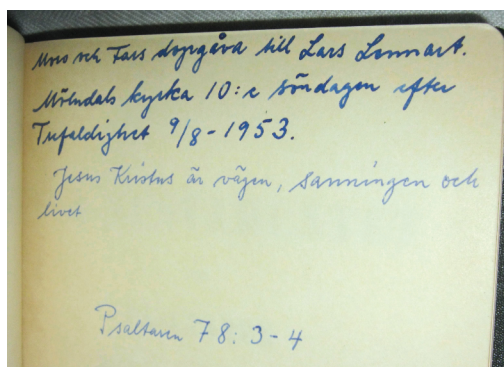 Mors och Fars dopgåva till Lars Lennart.
Mölndals kyrka 10:e söndagen efter
Trefaldighet 9/8-1953.
Jesus Kristus är vägen, sanningen och
livet
Psaltaren 78: 3-4